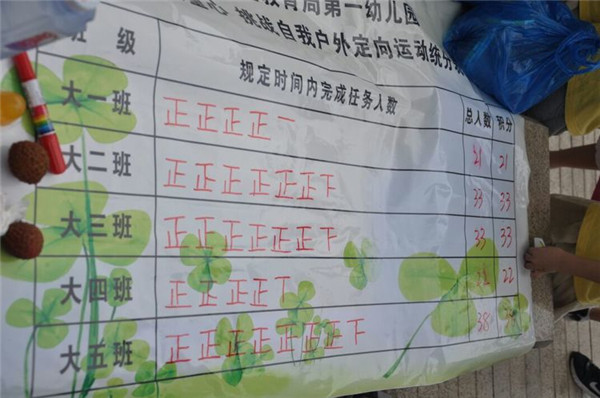 教育局第一幼儿园
心 挑战自我户外定向运动统分
班 级 规定时间内完成任务人数 总人数 积分
大一班 正正正正一 21 21
大二班 正正正正正正下 33 33
大三班 正正正正正正下 33 33
大四班 正正正正丅 22 22
大五班 正正正正正正正下 38